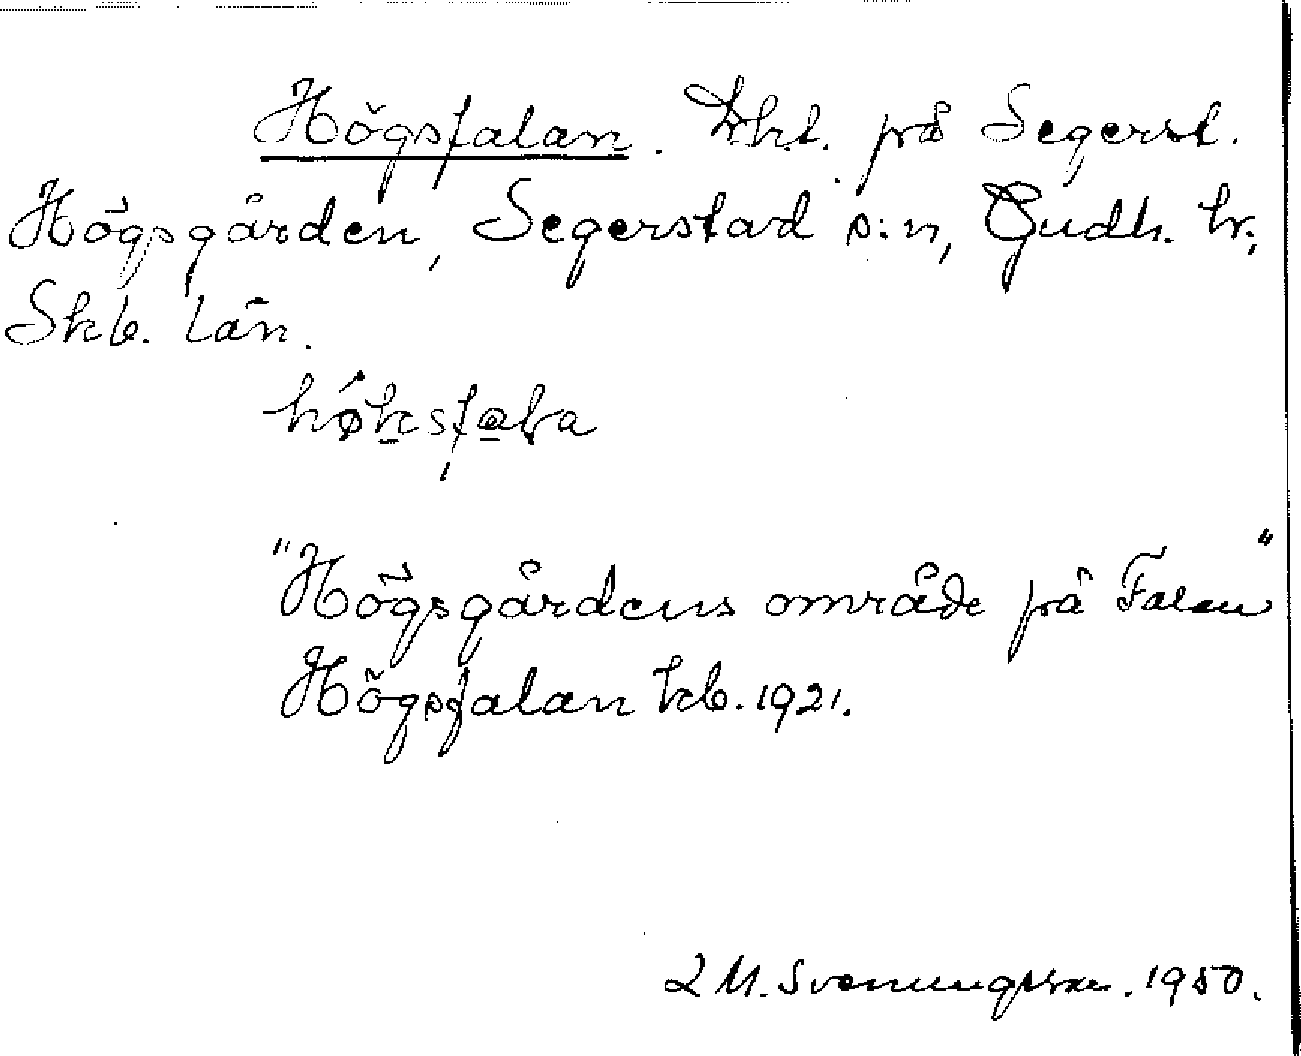 Högsfalan. Trkt. på Segerst.
Högsgården, Segerstad s:n, Gudh. hr,
Skb. län.
hǿksfala
"Högsgårdens område på Falan"
Högsfalan kb. 1921.
L M. Svenungsson. 1950.